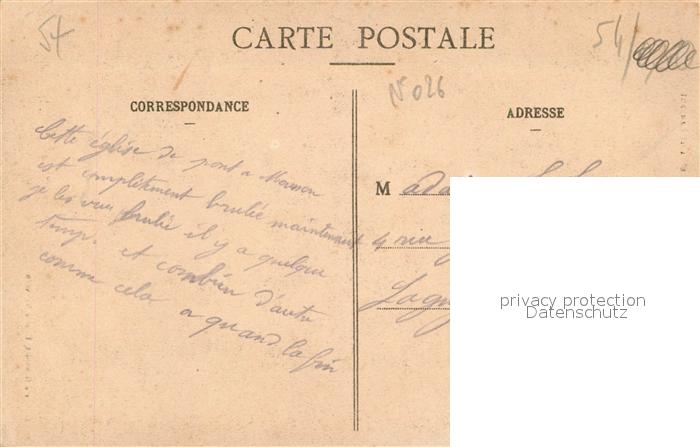 54
CARTE POSTALE
54/
N° 026
CORRESPONDANCE
ADRESSE
Cette église de pont a Mousson
est complètement brulée maintenant
je les vue brulé il y a quelque
temp. et combien d'autre
comme cela a quand la fin
M ada
4 rue
Lagny
privacy protection
Datenschutz